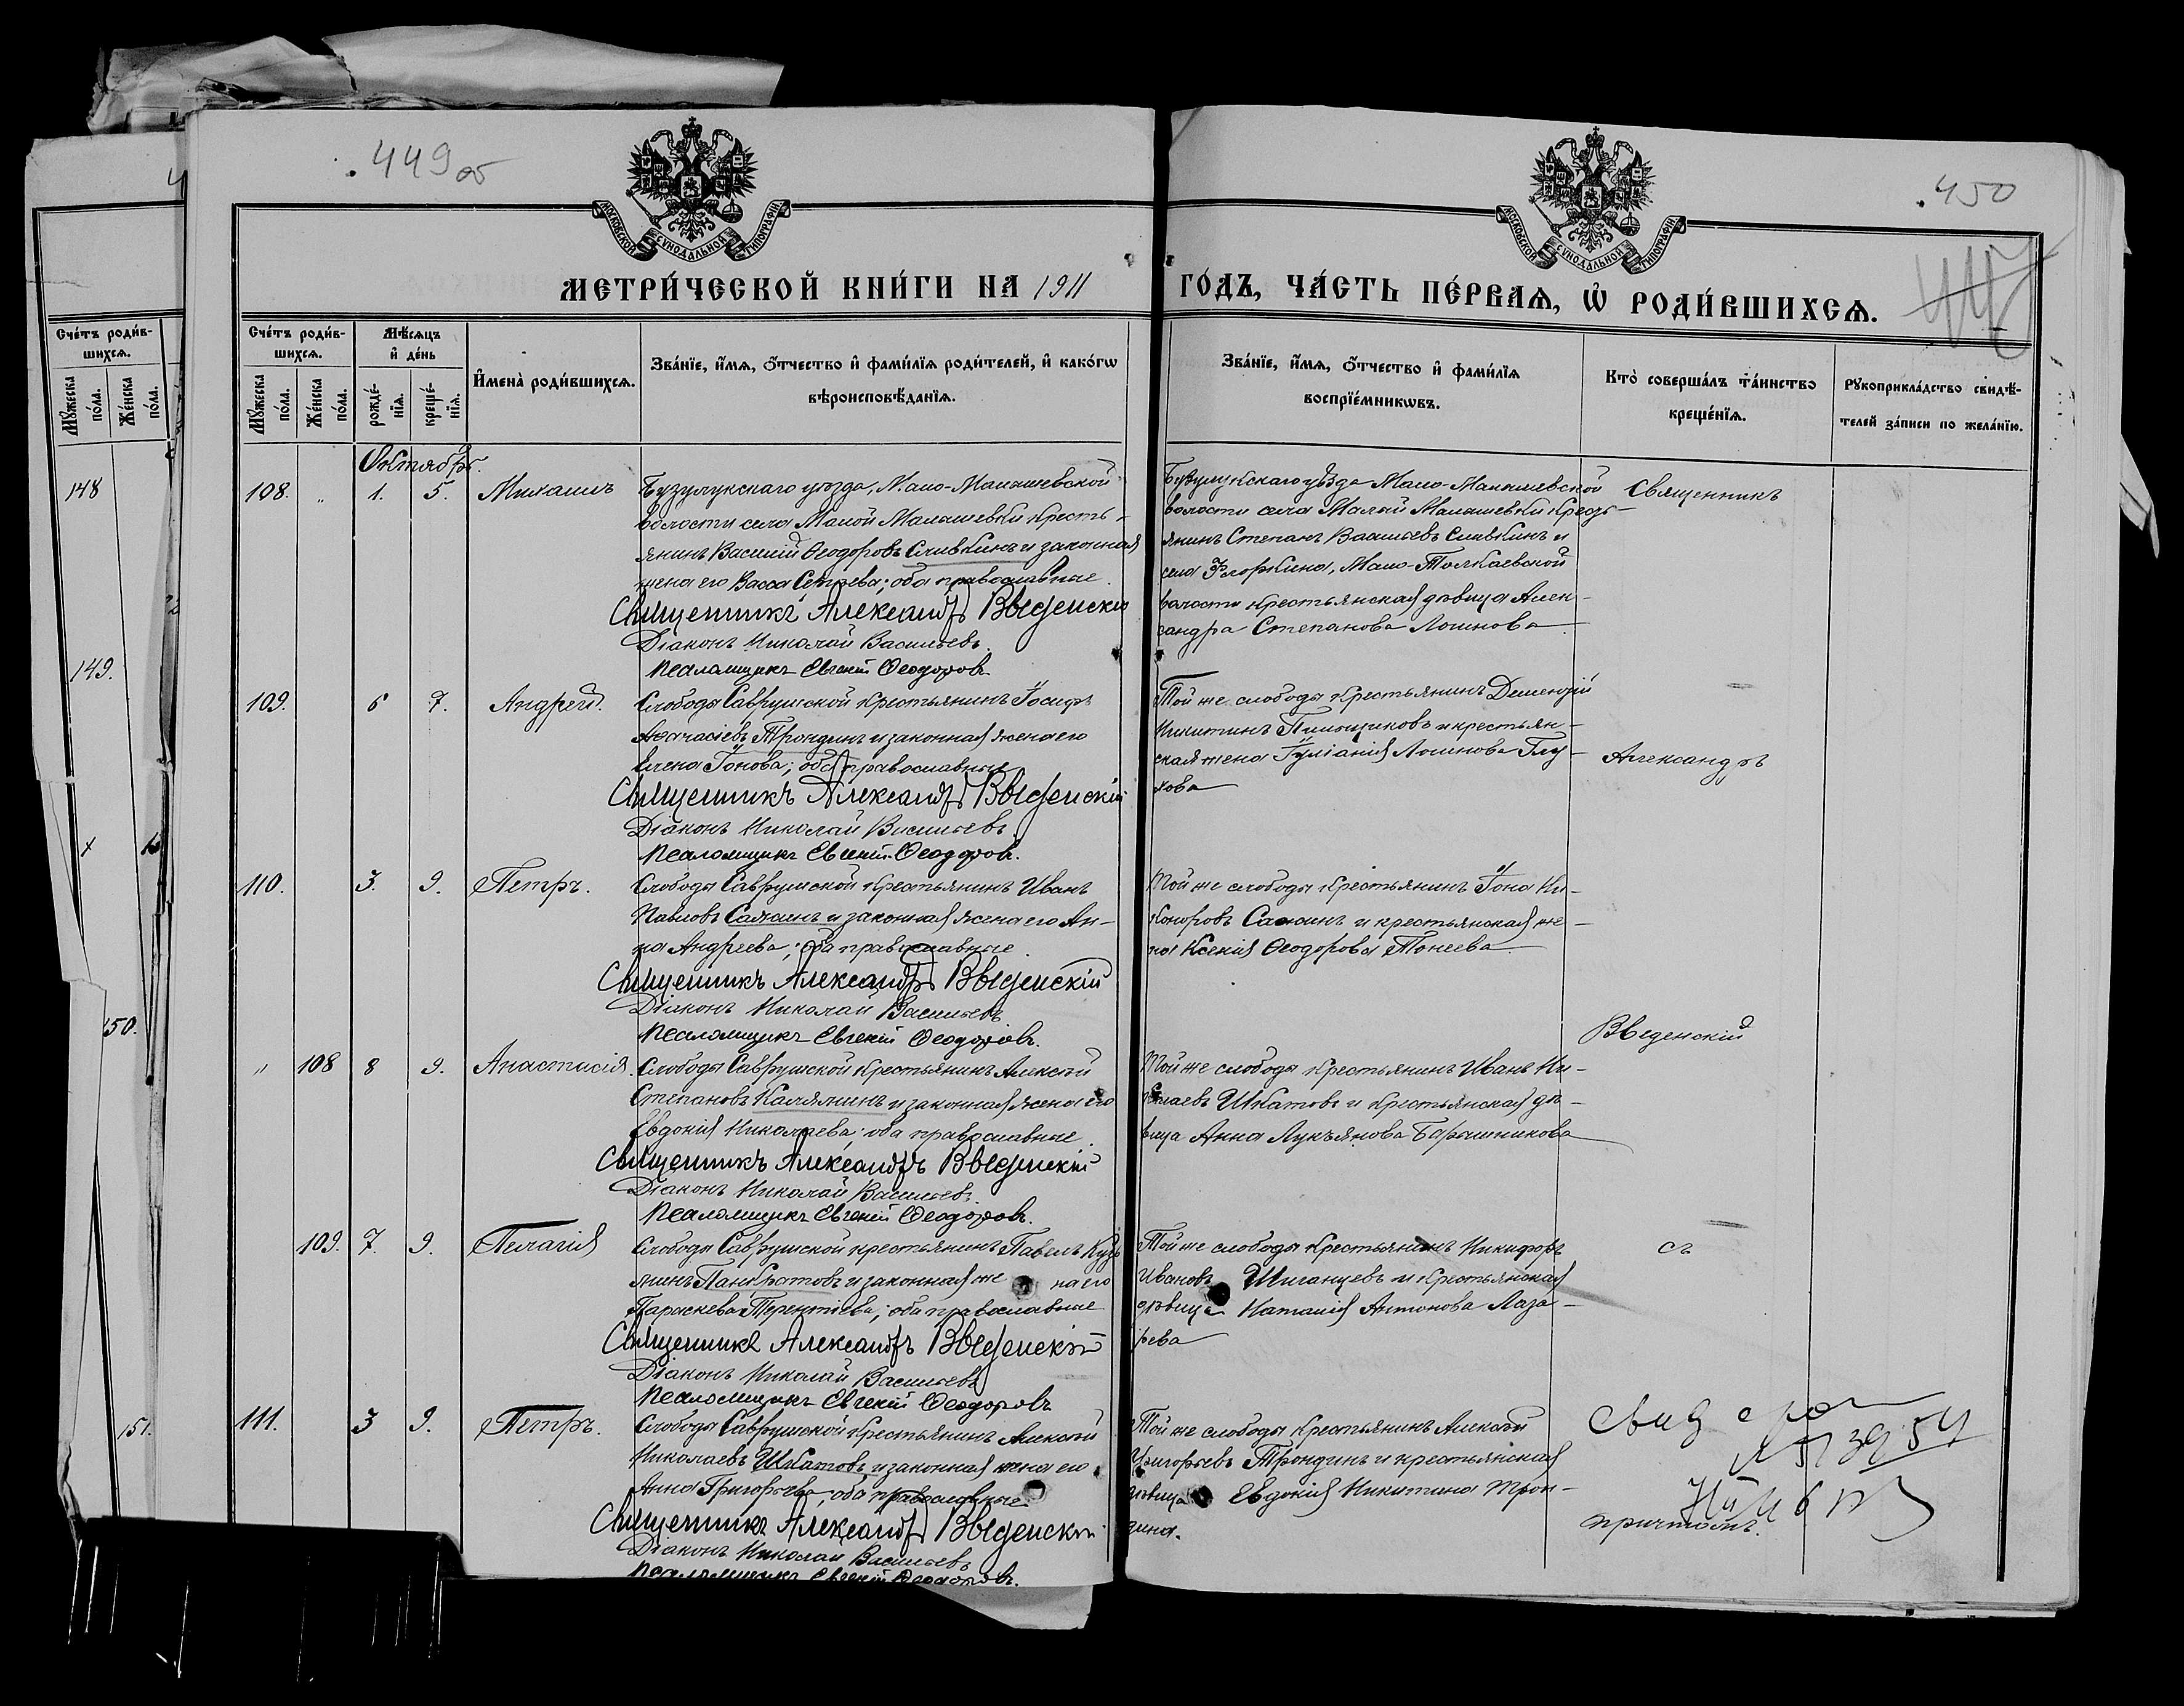 449 об
450
МОСКОВСКОЙ СѴНОДАЛЬНОЙ ТИПОГРАФІИ
МОСКОВСКОЙ СѴНОДАЛЬНОЙ ТИПОГРАФІИ
МЕТРИ́ЧЕСКОЙ КНИ́ГИ НА 1911
ГО́ДЪ, ЧА́СТЬ ПЕ́РВАѦ, Ѡ РОДИ́ВШИХСѦ.
Сче́тъ роди́в-
шихсѧ.
Мꙋ́жеска
по́ла.
Же́нска
по́ла.
Сче́тъ роди́в-
шихсѧ.
Мꙋ́жеска
по́ла.
Же́нска
по́ла.
Мѣ́сѧцъ
и҆ де́нь
рожде́-
нїѧ.
креще́-
нїѧ.
И҆мена̀ роди́вшихсѧ.
Зва́нїе, и҆́мѧ, о҆́тчество и҆ фами́лїѧ роди́телей, и҆ како́гѡ
вѣроисповѣ́данїѧ.
Зва́нїе, и҆́мѧ, о҆́тчество и҆ фами́лїѧ
воспрїе́мникѡвъ.
Кто̀ соверша́лъ та́инство
креще́нїѧ.
Рꙋкоприкла́дство свидѣ́-
телей за́писи по жела́нїю.
148
149.
150.
151.
Октябрь.
108. „ 1. 5. Михаилъ
Бузулукскаго уѣзда, Мало-Малышевской
волости села Малой Малышевки кресть-
янинъ Василій Ѳеодоровъ Сливкинъ и законная
жена его Васса Сергѣева; оба православные.
Священникъ Александръ Введенскій
Діаконъ Николай Васильевъ.
Псаломщикъ Евгеній Ѳеодоровъ.
Бузулукскаго уѣзда Мало-Малышевской
волости села Малой Малышевки кресть-
янинъ Степанъ Васильевъ Сливкинъ и
села Флоркина, Мало-Толкаевской
волости крестьянская дѣвица Алек-
сандра Степанова Логинова.
Священникъ
109. 6 7. Андрей.
Слободы Саврушской крестьянинъ Іосифъ
Аѳанасіевъ Трондинъ и законная жена его
Елена Іонова; оба православные
Священникъ Александръ Введенскій
Діаконъ Николай Васильевъ.
Псаломщикъ Евгеній Ѳеодоровъ.
Той же слободы крестьянинъ
Никитинъ и крестьян-
ская жена Іуліанія Логинова Глу-
хова
Александръ
110. 3. 9. Петръ.
Слободы Саврушской крестьянинъ Иванъ
Павловъ Саяжинъ и законная жена его Ан-
на Андреева; оба православные.
Священникъ Александръ Введенскій
Діаконъ Николай Васильевъ
Псаломщикъ Евгеній Ѳеодоровъ.
Той же слободы крестьянинъ Іона Ни-
коноровъ и крестьянская же-
на Ксенія Ѳеодорова Тонеева
Введенскій
„ 108 8 9. Анастасія.
Слободы Саврушской крестьянинъ Алексѣй
Степановъ и законная жена его
Евдокія Николаева; оба православные.
Священникъ Александръ Введенскій
Діаконъ Николай Васильевъ.
Псаломщикъ Евгеній Ѳеодоровъ.
Той же слободы крестьянинъ Иванъ Ни-
колаевъ Шкатовъ и крестьянская дѣ-
вица Анна Лукъянова Барышникова
109. 7. 9. Пелагія
Слободы Саврушской крестьянинъ Павелъ Кузь-
минъ Панкратовъ и законная жена его
Параскева Терентіева; оба православные
Священникъ Александръ Введенскій
Діаконъ Николай Васильевъ
Псаломщикъ Евгеній Ѳеодоровъ
Той же слободы крестьянинъ Никифоръ
Ивановъ и крестьянская
дѣвица Наталія Антонова Лаза-
рева
съ
111. 3 9. Петръ.
Слободы Саврушской крестьянинъ Алексѣй
Николаевъ Шкатовъ и законная жена его
Анна Григорьева, оба православные.
Священникъ Александръ Введенскій
Діаконъ Николай Васильевъ
Псаломщикъ Евгеній Ѳеодоровъ.
Той же слободы крестьянинъ Алексѣй
Григорьевъ Трондинъ и крестьянская
дѣвица Евдокія Никитина Трон-
дина.
причтомъ.